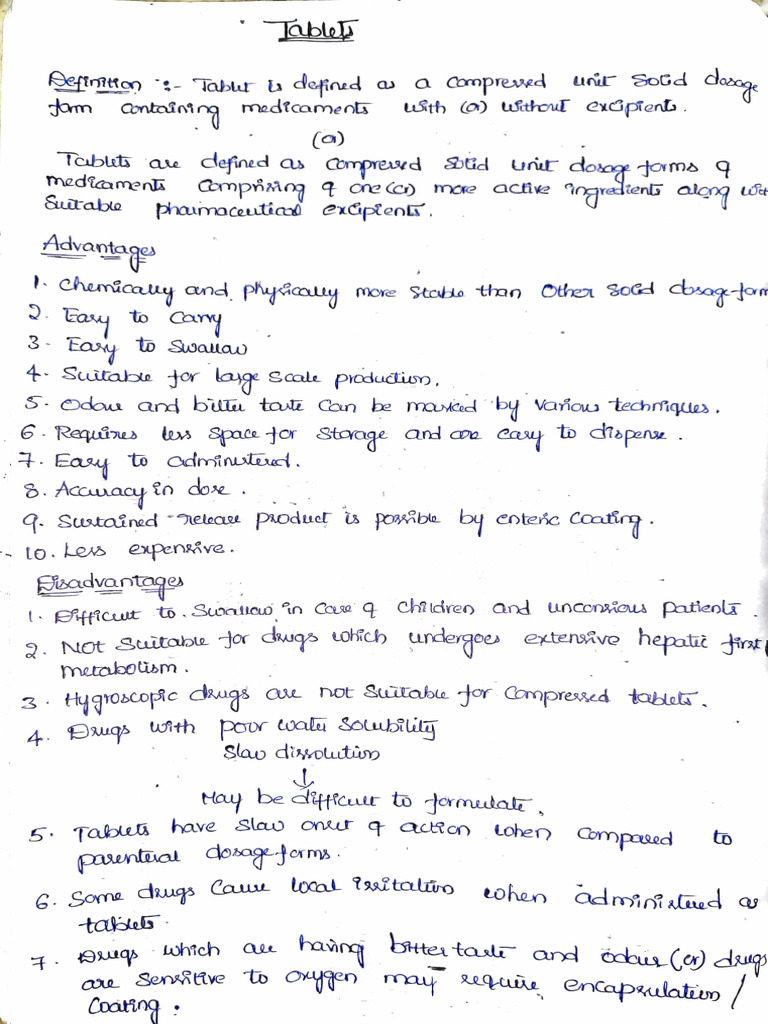 Tablets
Definition :- Tablet is defined as a compressed unit solid dosage
form containing medicaments with (or) without excipients.
(or)
Tablets are defined as compressed solid unit dosage forms of
medicaments comprising of one (or) more active ingredients along with
suitable pharmaceutical excipients.
Advantages
1. Chemically and physically more stable than other solid dosage form
2. Easy to carry
3. Easy to swallow
4. Suitable for large scale production.
5. Odour and bitter taste can be masked by various techniques.
6. Requires less space for storage and are easy to dispense.
7. Easy to administered.
8. Accuracy in dose.
9. Sustained release product is possible by enteric coating.
10. Less expensive.
Disadvantages
1. Difficult to swallow in case of children and unconsious patients.
2. Not suitable for drugs which undergoes extensive hepatic first
metabolism.
3. Hygroscopic drugs are not suitable for compressed tablets.
4. Drugs with poor water solubility
slow dissolution
↓
May be difficult to formulate.
5. Tablets have slow onset of action when compared to
parenteral dosage forms.
6. Some drugs cause local irritation when administered as
tablets.
7. Drugs which are having bitter taste and odour (or) drugs
are sensitive to oxygen may require encapsulation /
coating.